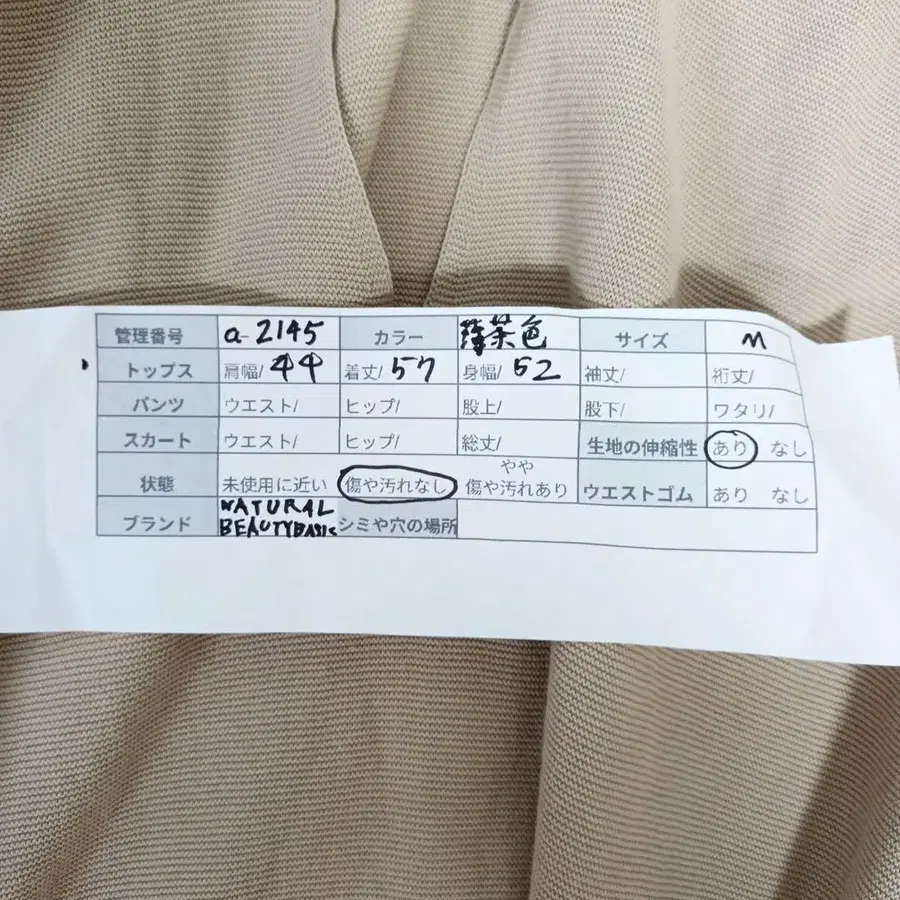 管理番号 a-2145 カラー 薄茶色 サイズ M
トップス 肩幅/ 44 着丈/ 57 身幅/ 52 袖丈/ 裄丈/
パンツ ウエスト/ ヒップ/ 股上/ 股下/ ワタリ/
スカート ウエスト/ ヒップ/ 総丈/ 生地の伸縮性 あり なし
状態 未使用に近い 傷や汚れなし やや傷や汚れあり ウエストゴム あり なし
ブランド NATURAL BEAUTYBASIC シミや穴の場所